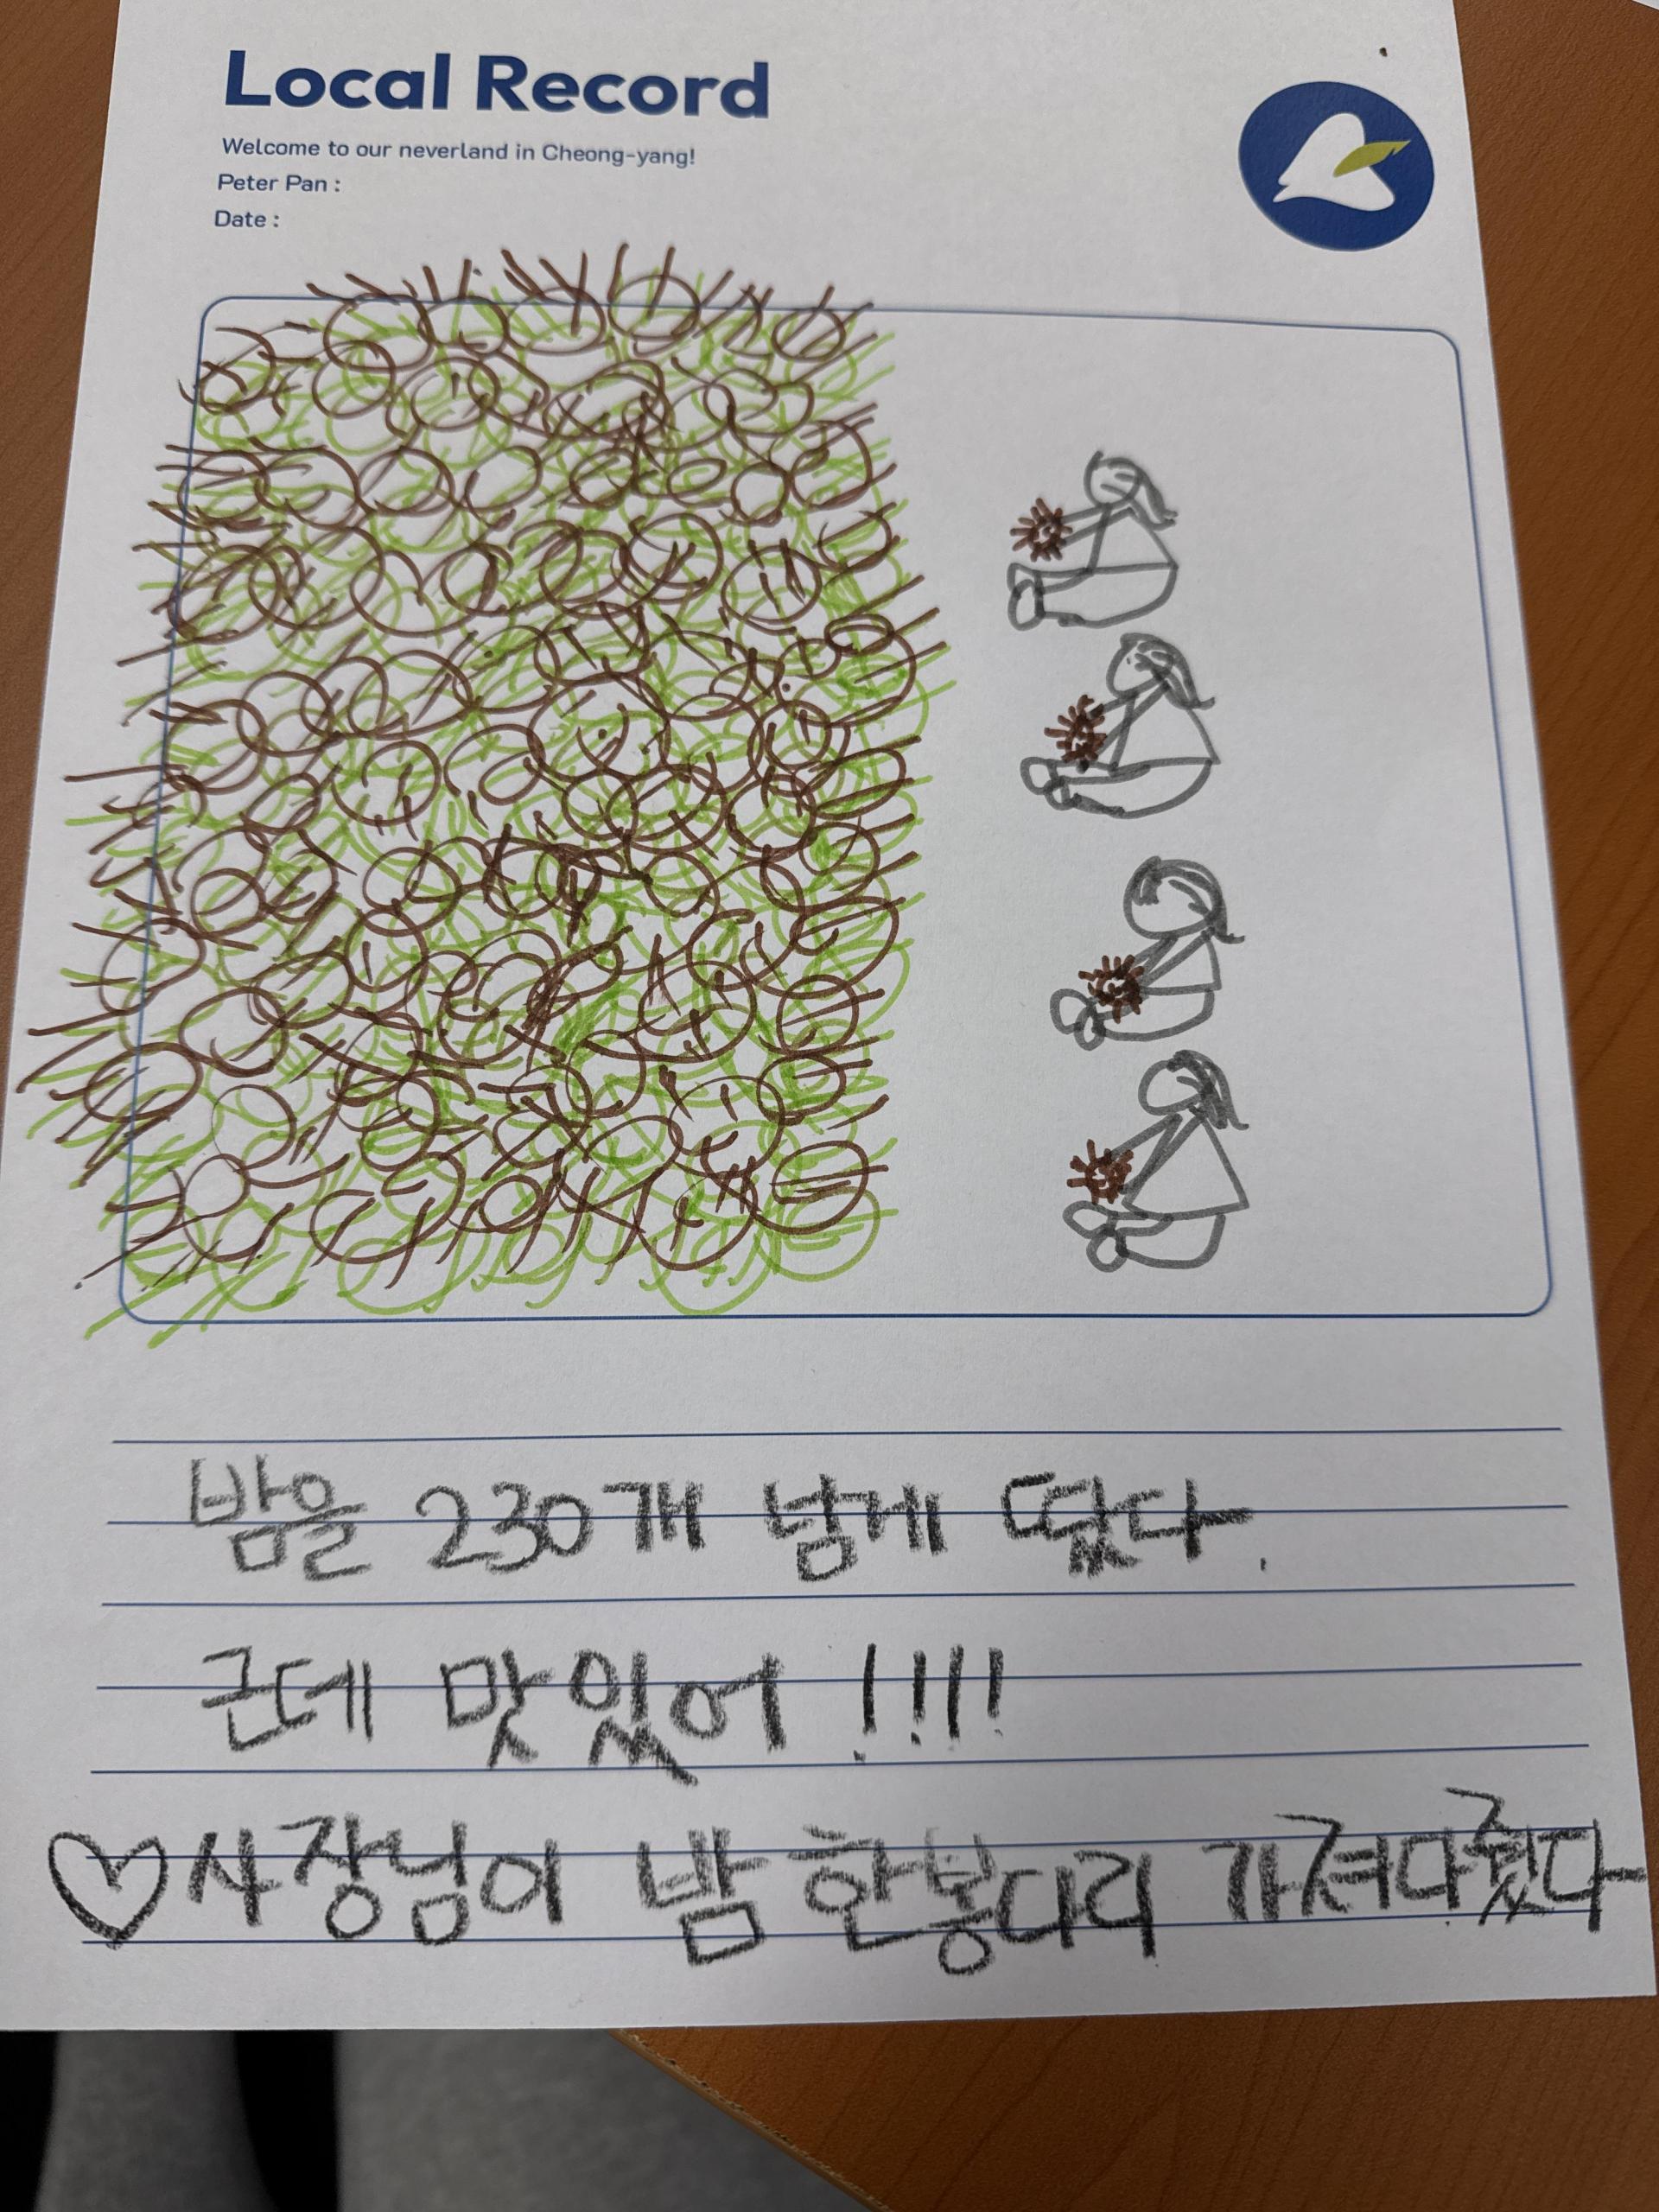 Local Record
Welcome to our neverland in Cheong-yang!
Peter Pan :
Date :
밤을 230개 넘게 땄다.
근데 맛있어 !!!!
♡사장님이 밤 한봉다리 가져다줬다